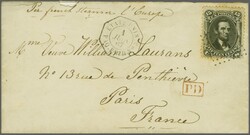 Per french Steamer l'Europe
Mme Veuve William Laurans
No 13 rue de Penthièvre
Paris
France
P.D.